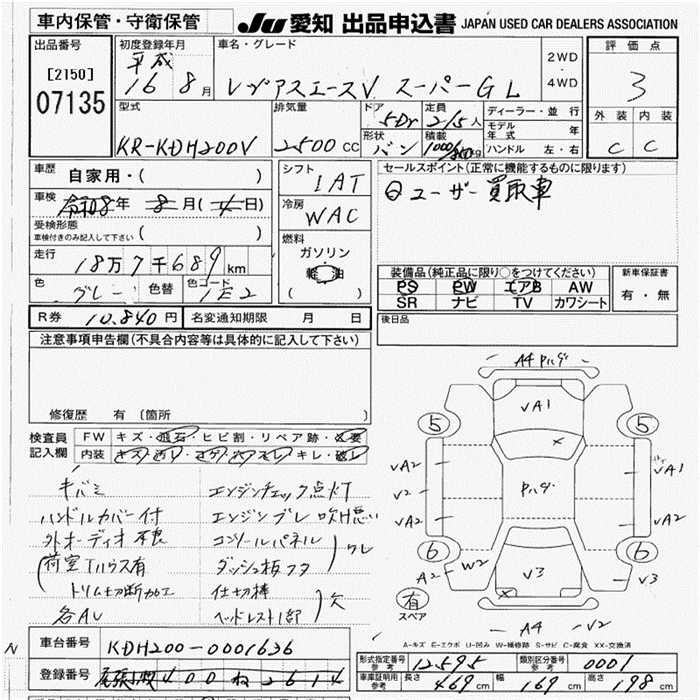 車内保管・守衛保管 JU 愛知 出品申込書 JAPAN USED CAR DEALERS ASSOCIATION
出品番号 初度登録年月 車名・グレード 2WD ・ 4WD 評価点
[2150] 平成
07135 16 8月 レジアスエースV スーパーGL 3
型式 排気量 ドア 5Dr 定員 2/5人 ディーラー・並行 外装 内装
KR-KDH200V 2500 CC 形状 バン 積載 kg モデル年式 年 ハンドル 左・右 C C
車歴 自家用・( ) シフト 1AT セールスポイント(正常に機能するものに限ります)
車検 令和8年 8月(4日) 冷房 WAC ユーザー買取車
受検形態 車検付きのみ記入して下さい ( ) 燃料 ガソリン
走行 18万7千689km 軽油
色 グレー 色替 色コード 1E2 ( )
装備品(純正品に限り○をつけてください) 新車保証書
PS PW エアB AW 有・無
SR ナビ TV カワシート
R券 10,840円 名変通知期限 月 日 後日品
注意事項申告欄(不具合内容等は具体的に記入して下さい)
修復歴 有(箇所 )
検査員記入欄 FW キズ・飛石・ヒビ割・リペア跡・必要
内装 キレ・破レ
キバミ エンジンチェック点灯
ハンドルカバー付 エンジンブレ 吹け悪い
外オーディオ不良 コンソールパネル
荷室Tハウス有 ダッシュ板フタ ワレ
トリム切断加工 仕切棒
各AU ヘッドレスト1部 欠
A4 Pハゲ
VA1
5 5
VA2 Pハゲ VA1
V2
VA2 VA2
6 6
A2 W2 V3 V3
有 スペア
A4 V2
A-キズ E-エクボ U-凹み W-補修跡 S-サビ C-腐食 XX-交換済
N
車台番号 KDH200-0001636
登録番号 尾張小牧 400 ね 2614
型式指定番号 参考 12595 類別区分番号 参考 0001
車庫証明用 参考 長さ 469cm 幅 169cm 高さ 198cm